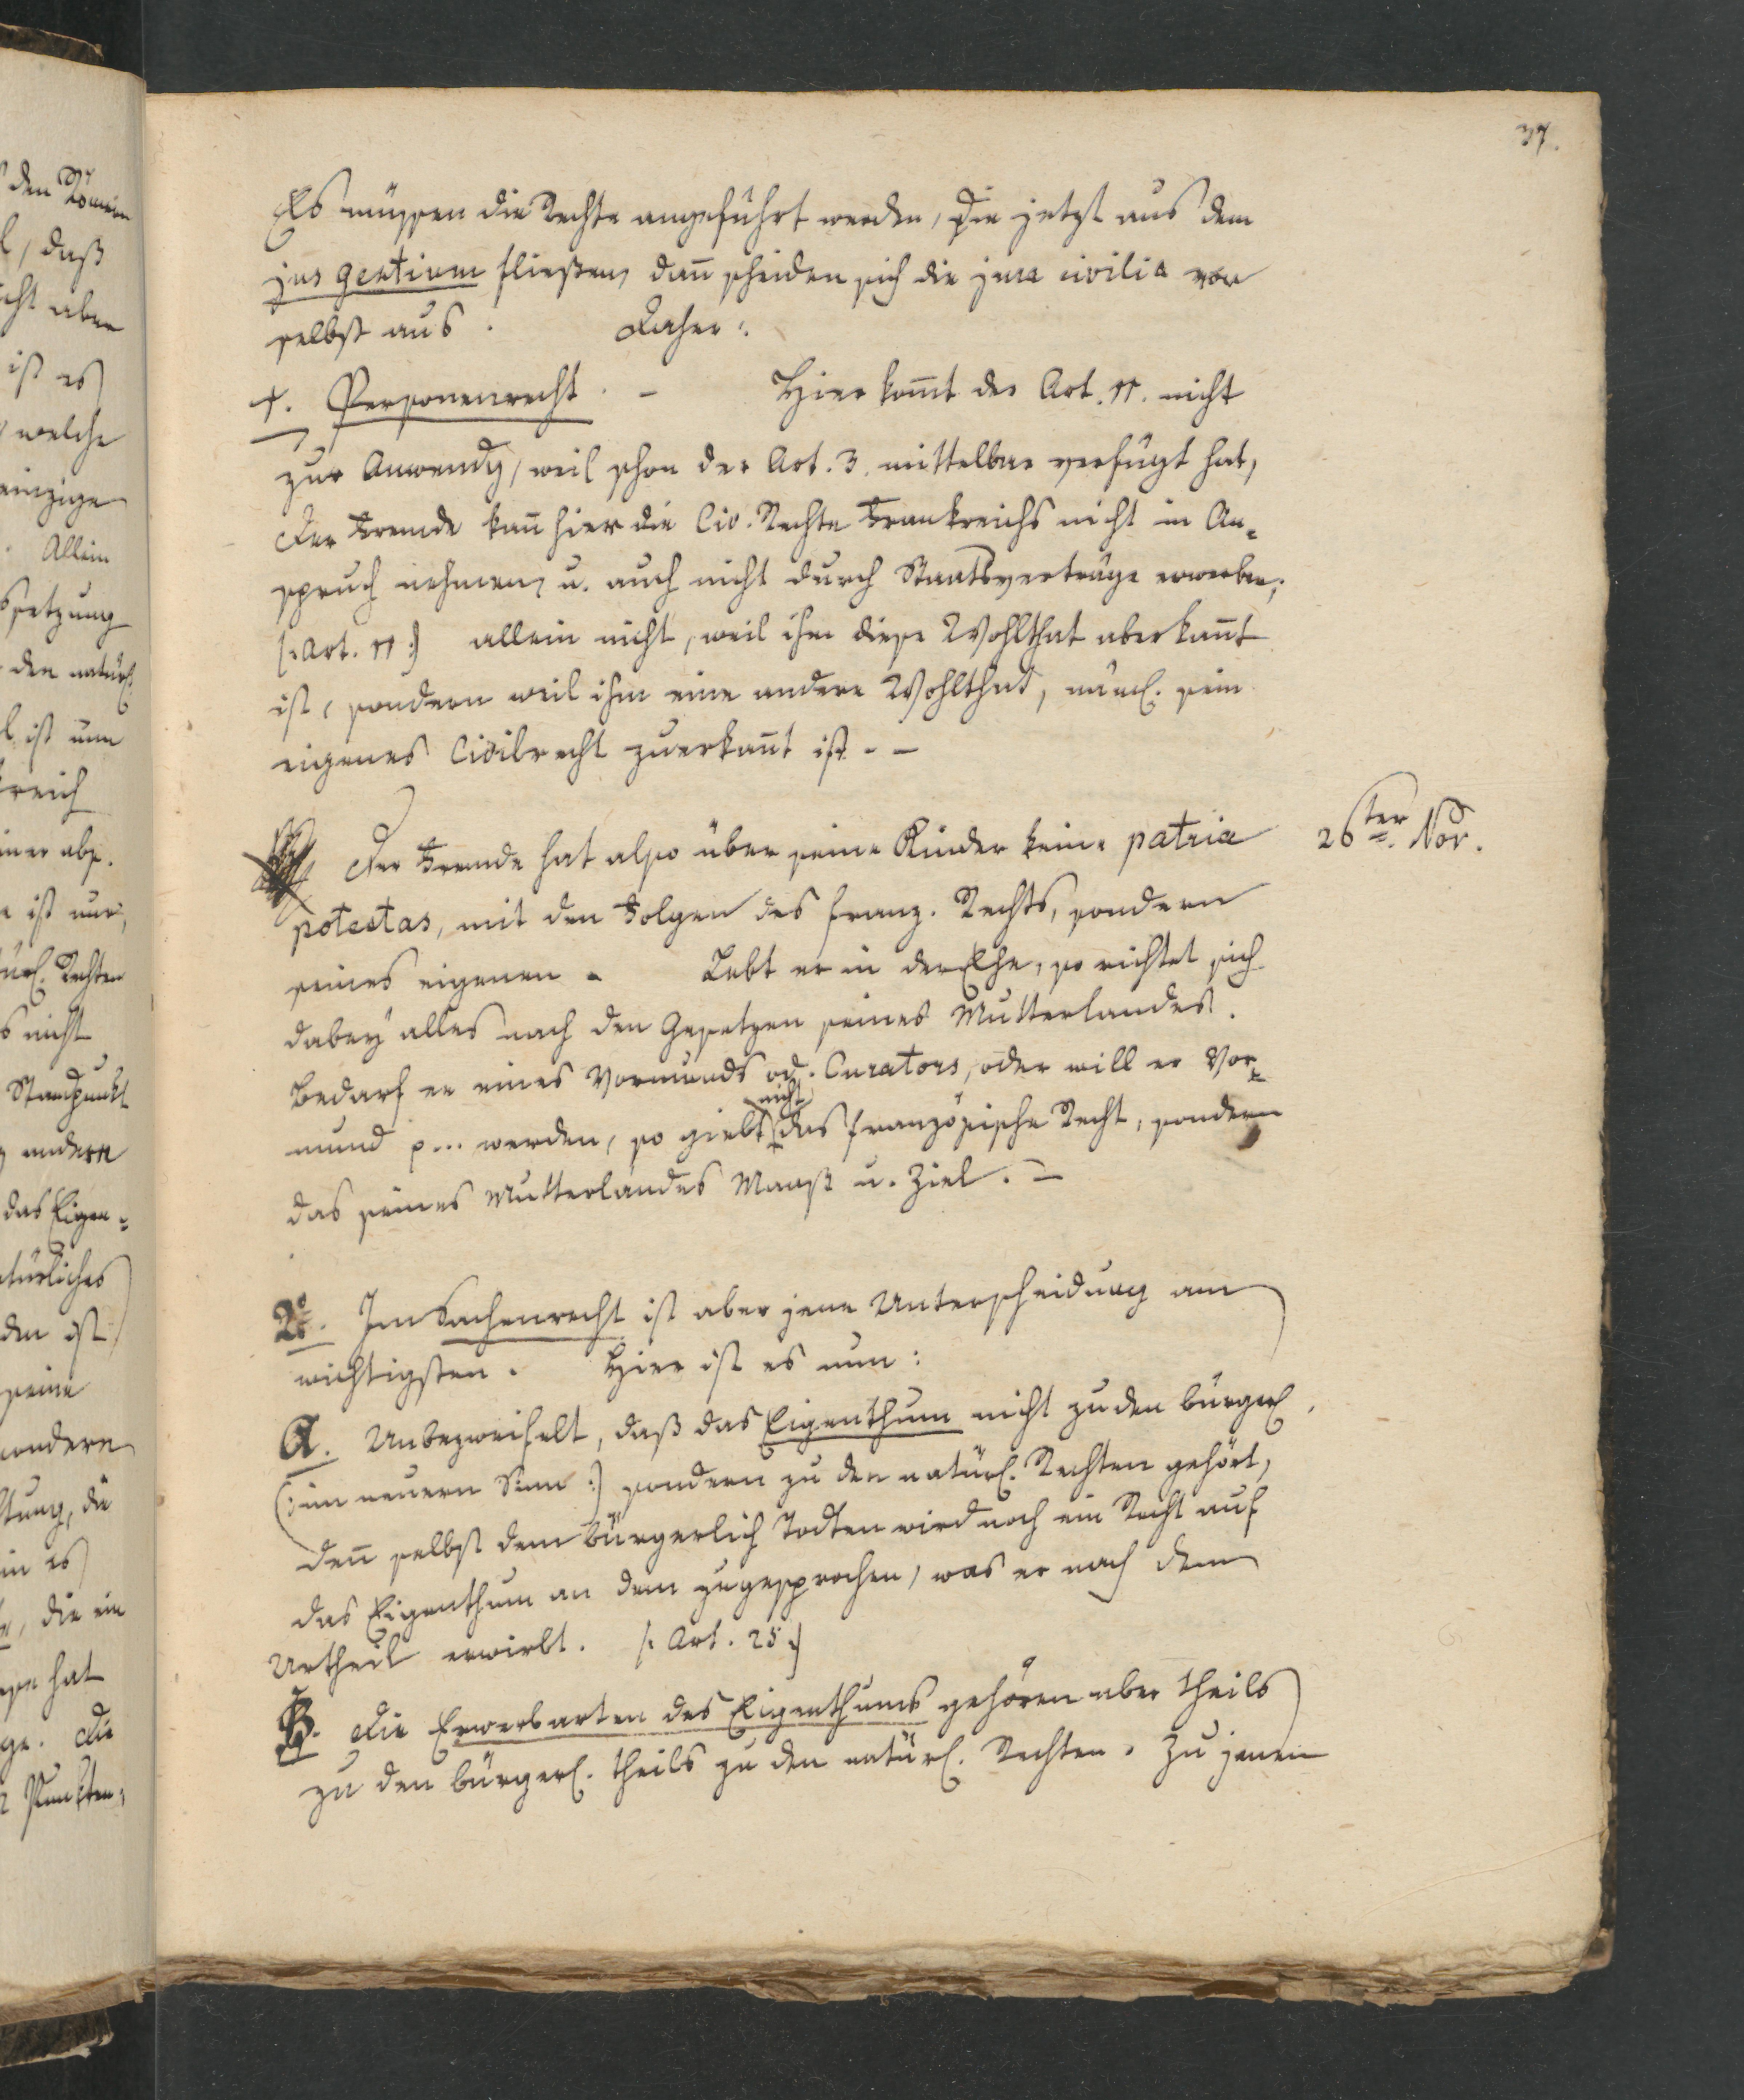 37.
Es müssen die Rechte angeführt werden, die jetzt aus dem
jus gentium fließen, dan̄ scheiden sich die jura civilia von
selbst aus. Daher:
1. Personenrecht. – Hier kom̄t der Art. 11. nicht
zur Anwendg, weil schon der Art. 3. mittelbar verfügt hat,
Der Fremde kan̄ hier die Civ. Rechte Frankreichs nicht in An-
spruch nehmen, u. auch nicht durch Staatsverträge erwerben;
(: Art. 11 :) allein nicht, weil ihm diese Wohlthat aberkan̄t
ist, sondern weil ihm eine andere Wohlthat, näml. sein
eigenes Civilrecht zuerkan̄t ist. –
26ter Nov.
Der Fremde hat also über seine Kinder keine patria
potestas, mit den Folgen des franz. Rechts, sondern
seines eigenen. Lebt er in der Ehe, so richtet sich
dabey alles nach den Gesetzen seines Mutterlandes.
Bedarf er eines Vormunds od. Curators, oder will er Vor-
nicht
mund p... werden, so giebt das französische Recht, sondern
das seines Mutterlandes Maaß u. Ziel. –
2o. Im Sachenrecht ist aber jene Unterscheidung am
wichtigsten. Hier ist es nun:
A. Unbezweifelt, daß das Eigenthum nicht zu den bürgerl.
(: im neuern Sinn :) sondern zu den natürl. Rechten gehört,
den̄ selbst dem bürgerlich Todten wird noch ein Recht auf
das Eigenthum an dem zugesprochen, was er nach dem
Urtheil erwirbt. (: Art. 25 :)
B. Die Erwerbarten des Eigenthums gehören aber theils
zu den bürgerl. theils zu den natürl. Rechten. Zu jenen